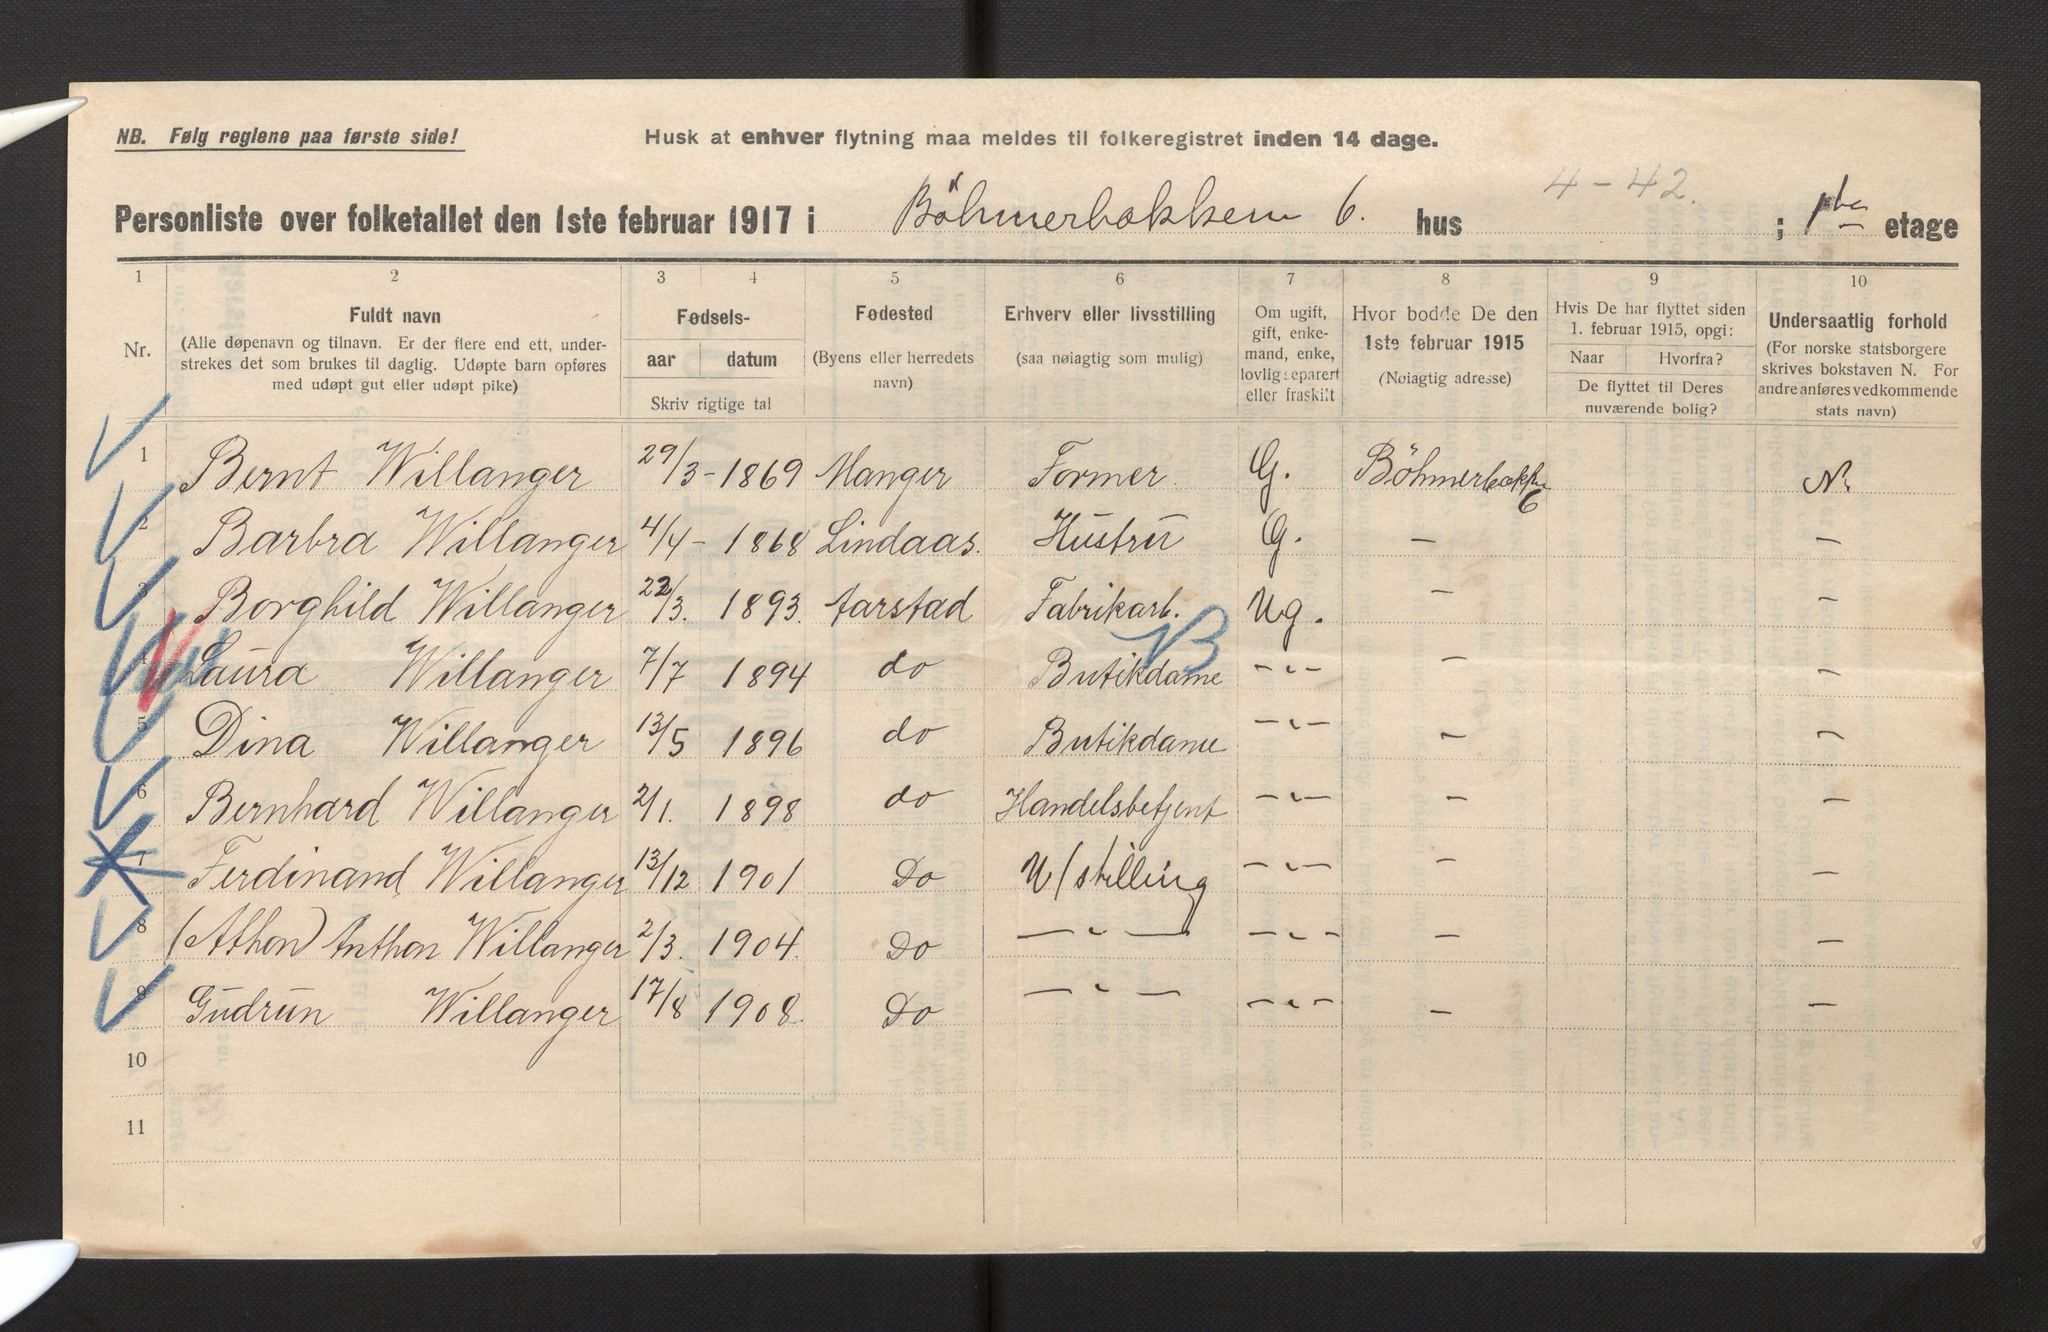 NB. Følg reglene paa første side!
Husk at enhver flytning maa meldes til folkeregistret inden 14 dage.
4-42.
Personliste over folketallet den 1ste februar 1917 i Böhmerbakken 6. hus ; 1ste etage
1 2 3 4 5 6 7 8 9 10
Nr.
Fuldt navn
(Alle døpenavn og tilnavn. Er der flere end ett, under-
strekes det som brukes til daglig. Udøpte barn opføres
med udøpt gut eller udøpt pike)
Fødsels-
aar datum
Skriv rigtige tal
Fødested
(Byens eller herredets
navn)
Erhverv eller livsstilling
(saa nøiagtig som mulig)
Om ugift,
gift, enke-
mand, enke,
lovlig separert
eller fraskilt
Hvor bodde De den
1ste februar 1915
(Nøiagtig adresse)
Hvis De har flyttet siden
1. februar 1915, opgi:
Naar Hvorfra?
De flyttet til Deres
nuværende bolig?
Undersaatlig forhold
(For norske statsborgere
skrives bokstaven N. For
andre anføres vedkommende
stats navn)
1 Bernt Willanger 29/3 - 1869 Manger Former G. Böhmerbakk. 6 N.
2 Barbra Willanger 4/4 - 1868 Lindaas. Hustru G. - -
3 Borghild Willanger 22/3. 1893. Aarstad Fabrikarb. Ug. - -
4 Laura Willanger 7/7 1894 do Butikdame -"- - -
5 Dina Willanger 13/5 1896 do Butikdame -"- - -
6 Bernhard Willanger 2/1. 1898 do Handelsbetjent -"- - -
7 Ferdinand Willanger 13/12 1901 Do U/stilling -"- - -
8 (Athon) Anthon Willanger 2/3. 1904. Do -"- -"- - -
9 Gudrun Willanger 17/8 1908. Do -"- -"- - -
10
11